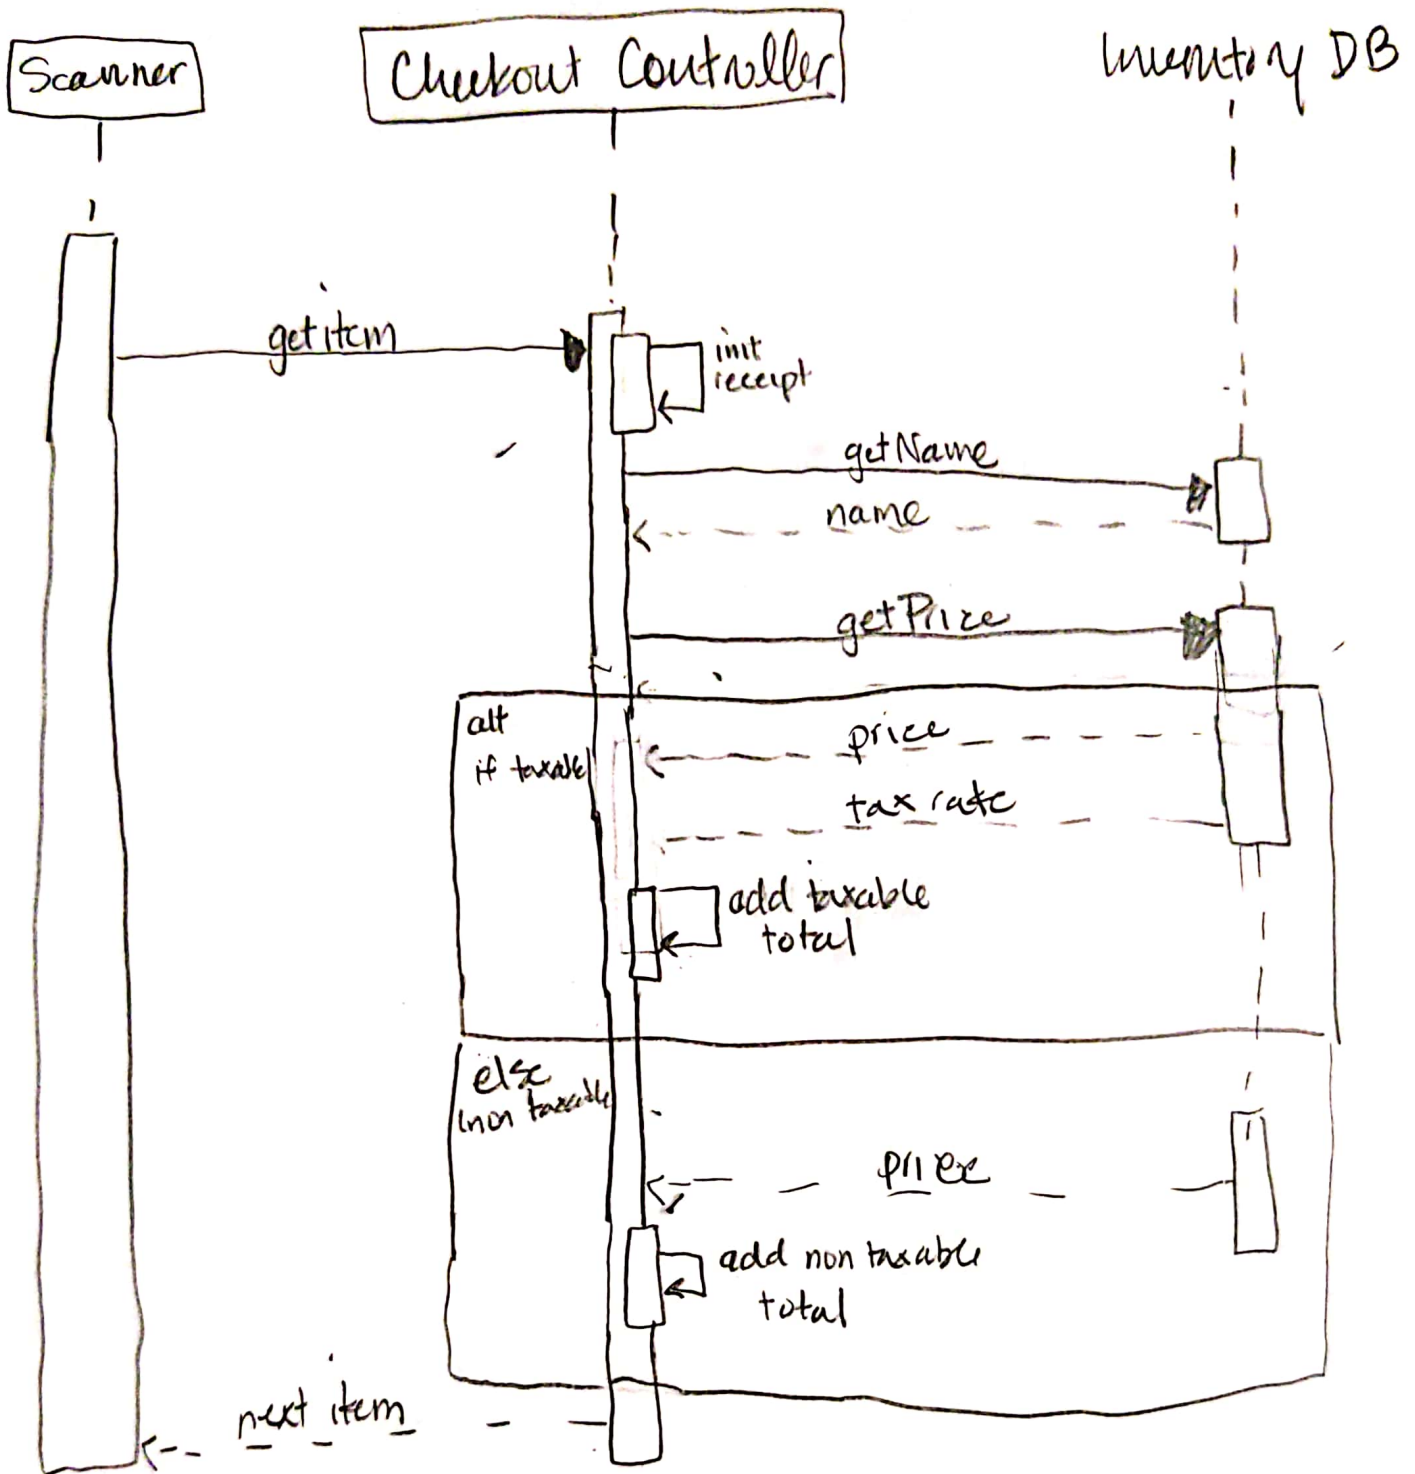 Scanner
Checkout Controller
Inventory DB
getitem
init
receipt
getName
name
getPrice
alt
if taxable
price
tax rate
add taxable
total
else
(non taxable
price
add non taxable
total
next item